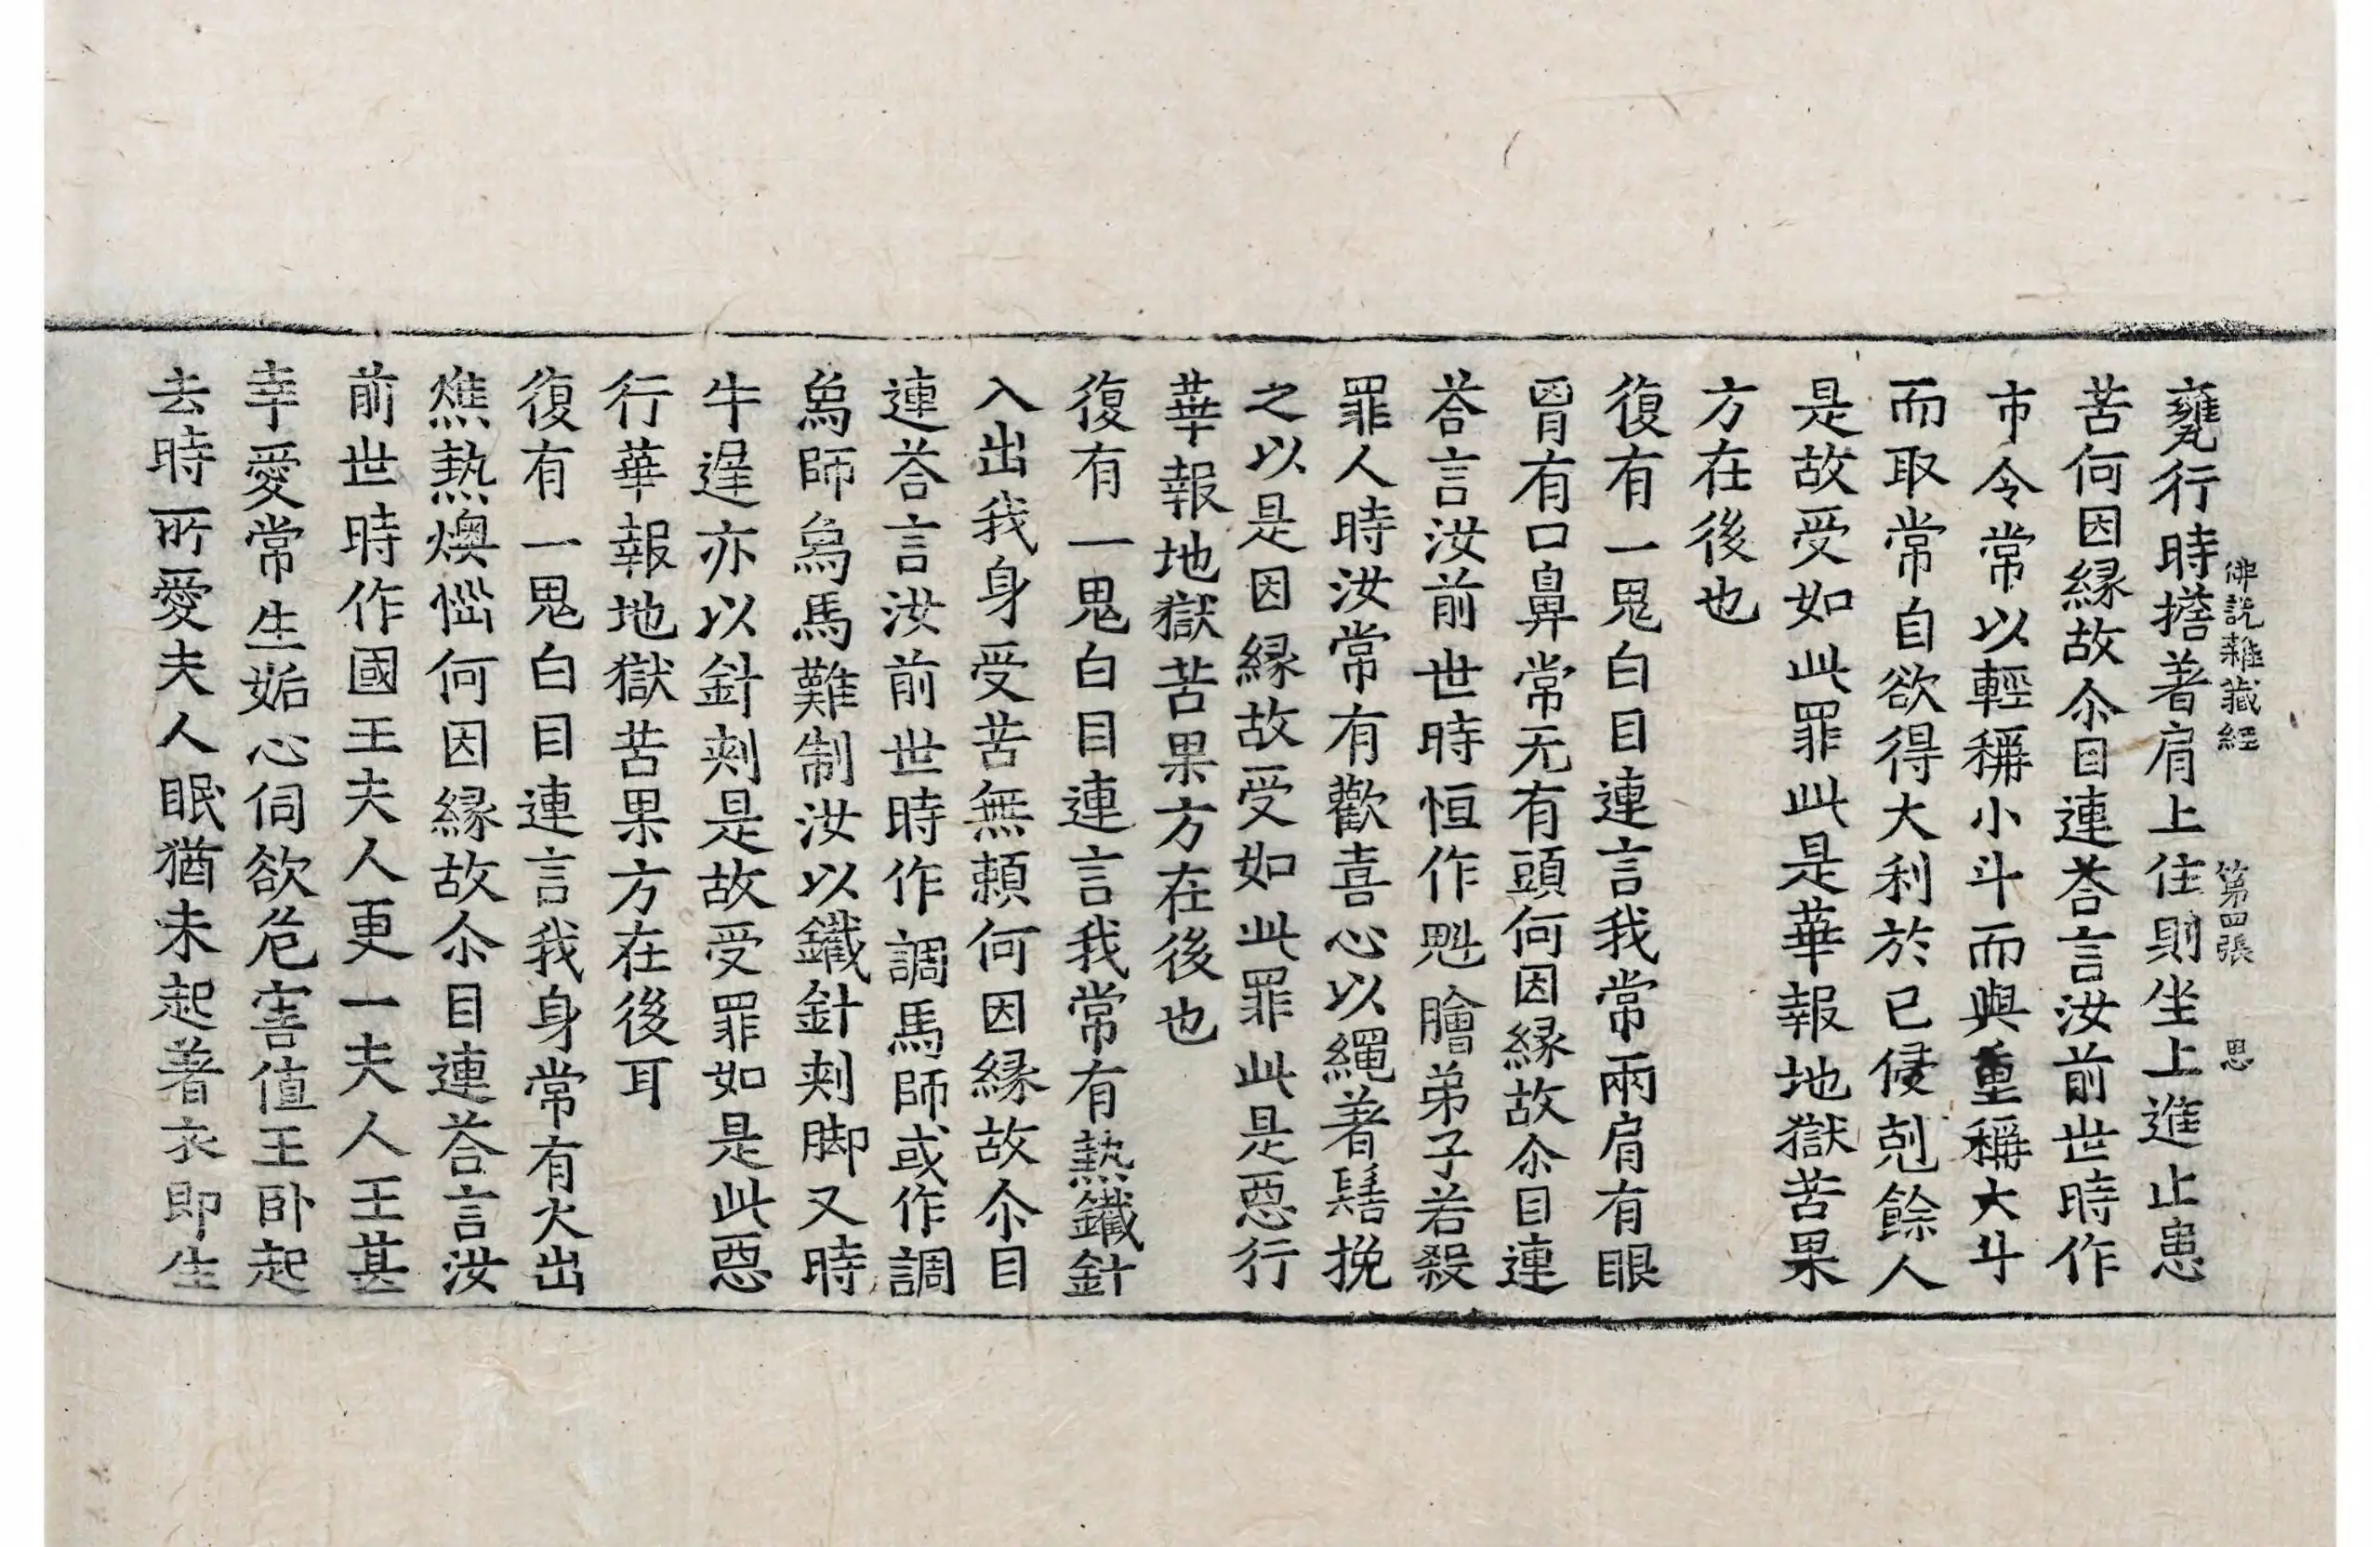 佛說雜藏經 第四張 思
甕行時擔著肩上住則坐上進止患
苦何因縁故尒目連荅言汝前世時作
市令常以輕稱小斗而與重稱大斗
而取常自欲得大利於已侵剋餘人
是故受如此罪此是華報地獄苦果
方在後也
復有一鬼白目連言我常兩肩有眼
胷有口鼻常无有頭何因縁故尒目連
荅言汝前世時恒作魁膾弟子若殺
罪人時汝常有歡喜心以繩著髻挽
之以是因縁故受如此罪此是惡行
華報地獄苦果方在後也
復有一鬼白目連言我常有熱鐵針
入出我身受苦無頼何因縁故尒目
連荅言汝前世時作調馬師或作調
烏師烏馬難制汝以鐵針刾脚又時
牛遟亦以針刾是故受罪如是此惡
行華報地獄苦果方在後耳
復有一鬼白目連言我身常有火出
燋熱燠惱何因縁故尒目連荅言汝
前世時作國王夫人更一夫人王甚
幸愛常生妬心伺欲危害值王卧起
去時所愛夫人眠猶未起著衣即生